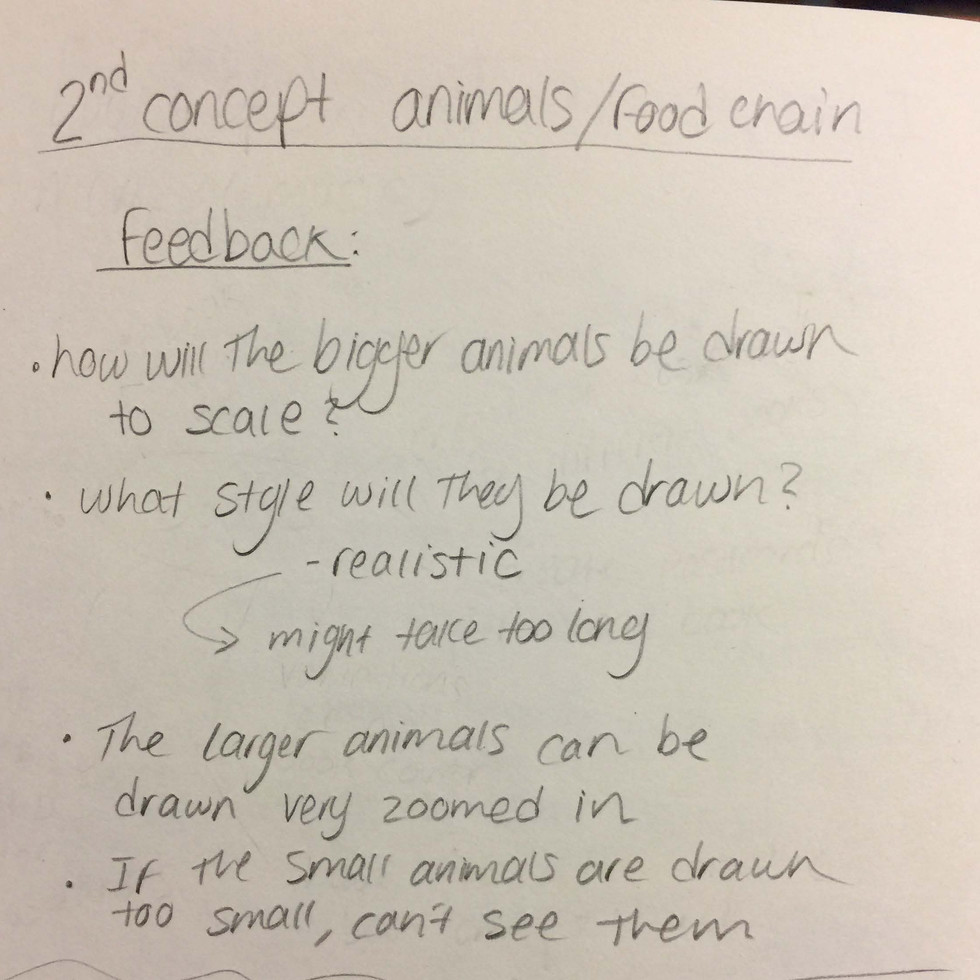 2nd concept animals/food chain
Feedback:
• how will the bigger animals be drawn
to scale?
• what style will they be drawn?
- realistic
→ might take too long
• The larger animals can be
drawn very zoomed in
• If the small animals are drawn
too small, can't see them